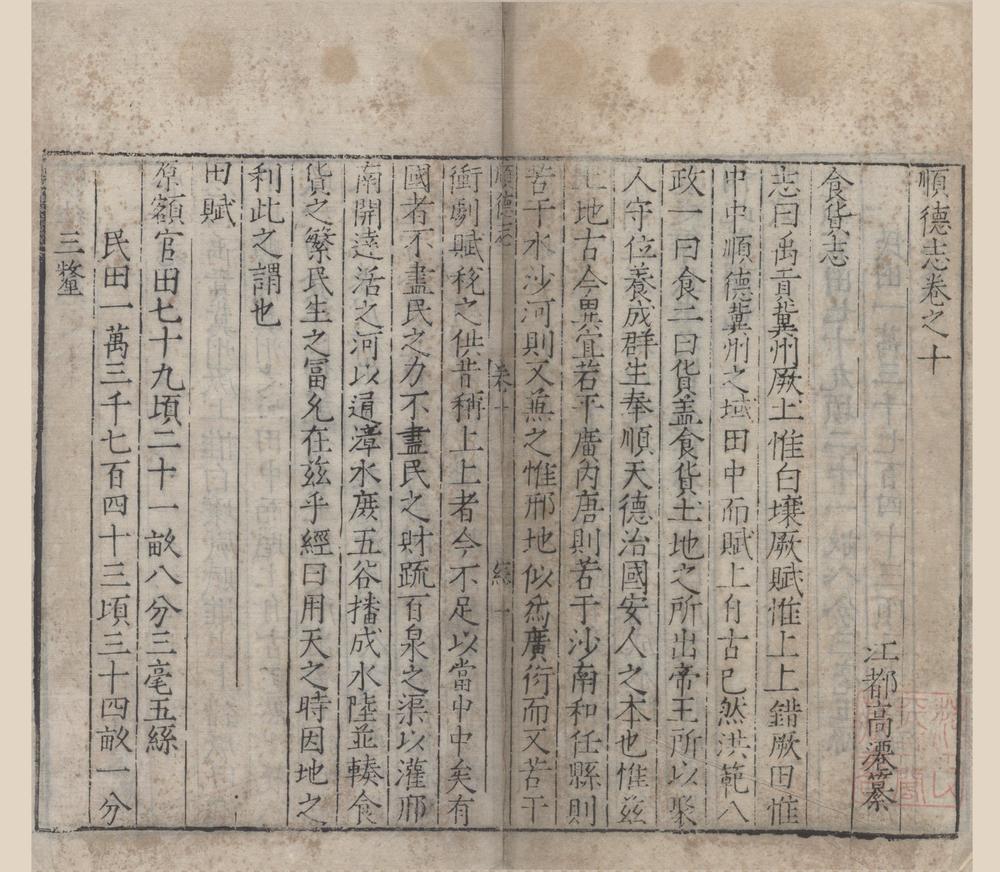 順德志卷之十
江都高瀠纂
食貨志
志曰禹貢冀州厥土惟白壤厥賦惟上上錯厥田惟
中中順德冀州之域田中而賦上自古已然洪範八
政一曰食二曰貨盖食貨土地之所出帝王所以聚
人守位養成群生奉順天德治國安人之本也惟兹
土地古今異宜若平廣內唐則苦于沙南和任縣則
苦于水沙河則又兼之惟邢地似爲廣衍而又苦于
順德志 卷十 一
衝劇賦稅之供昔稱上上者今不足以當中中矣有
國者不盡民之力不盡民之財䟽百泉之渠以灌邢
南開達活之河以通漳水庻五谷播成水陸並輳食
貨之繁民生之冨允在兹乎經曰用天之時因地之
利此之謂也
田賦
原額官田七十九頃二十一畝八分三毫五絲
民田一萬三千七百四十三頃三十四畝一分
三釐